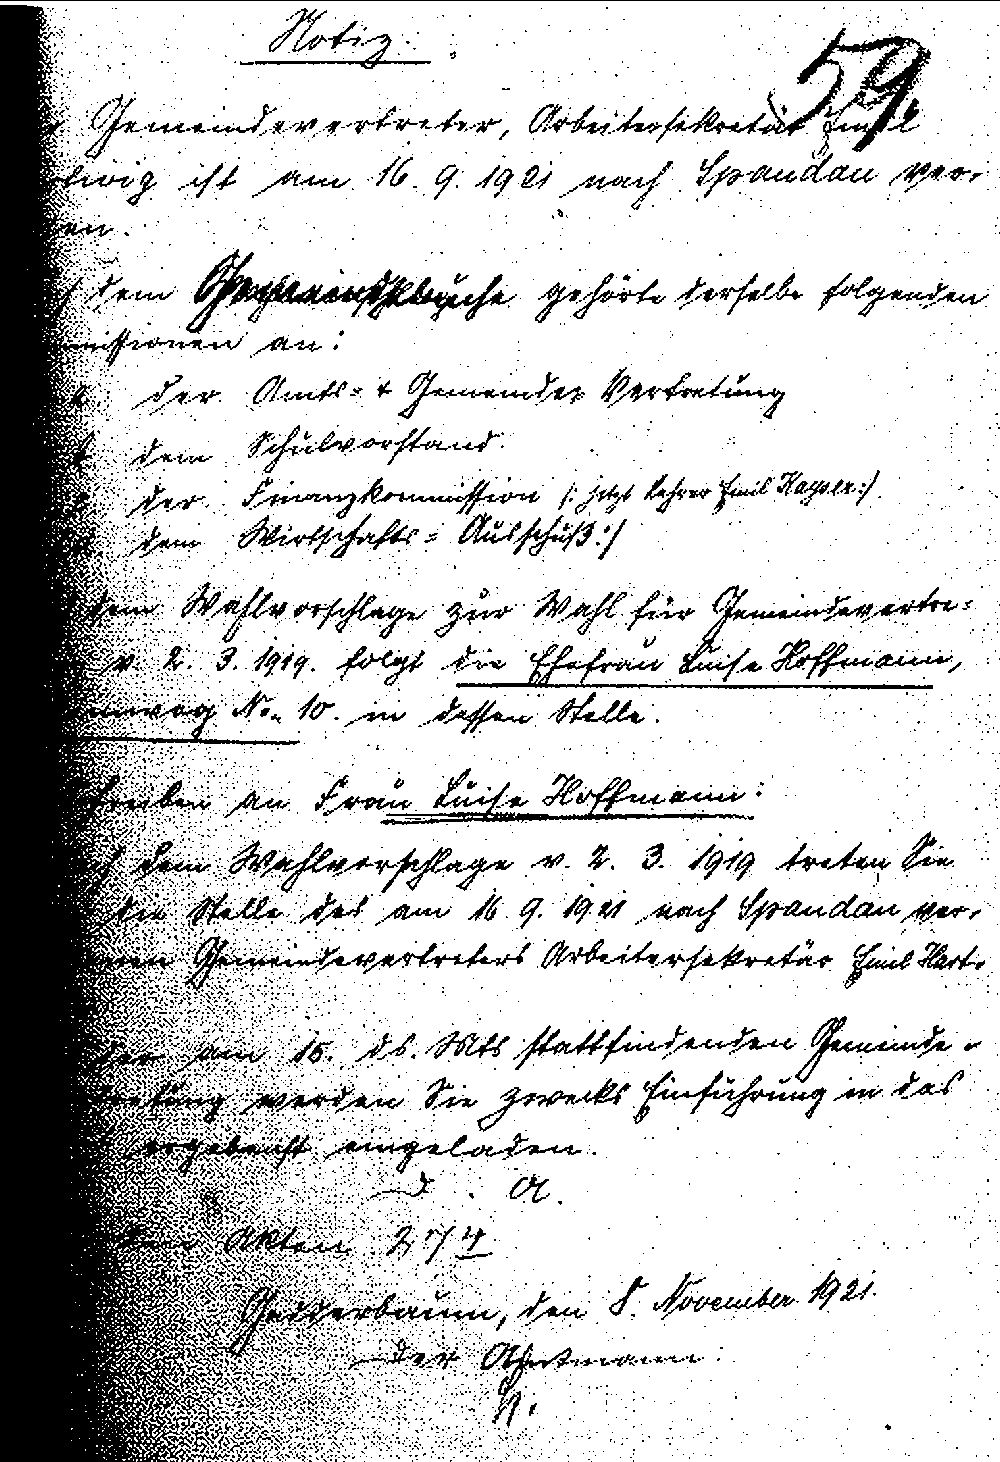 Notiz.
59.
Gemeindevertreter, Arbeitersekretär Emil
ist am 16. 9. 1921 nach Spandau ver-
en.
dem gehörte derselbe folgenden
missionen an:
a. der Amts- & Gemeinde-Vertretung
dem Schulvorstand.
der Finanzkommission /: jetzt Lehrer Emil Kayser :/
dem Wirtschafts-Ausschuß :/
dem Wahlvorschlage zur Wahl für Gemeindevertre-
v. 2. 3. 1919. folgt die Ehefrau Luise Hoffmann,
weg No. 10. in dessen Stelle.
Schreiben an Frau Luise Hoffmann:
dem Wahlvorschlage v. 2. 3. 1919 treten Sie
die Stelle des am 16. 9. 1921 nach Spandau ver-
enen Gemeindevertreters Arbeitersekretär Emil Hart-
der am 15. ds. Mts stattfindenden Gemeinde-
tretung werden Sie zwecks Einführung in das
ergebenst eingeladen.
D. A.
den Akten 274
Gadderbaum, den 8. November 1921.
Der Amtmann: